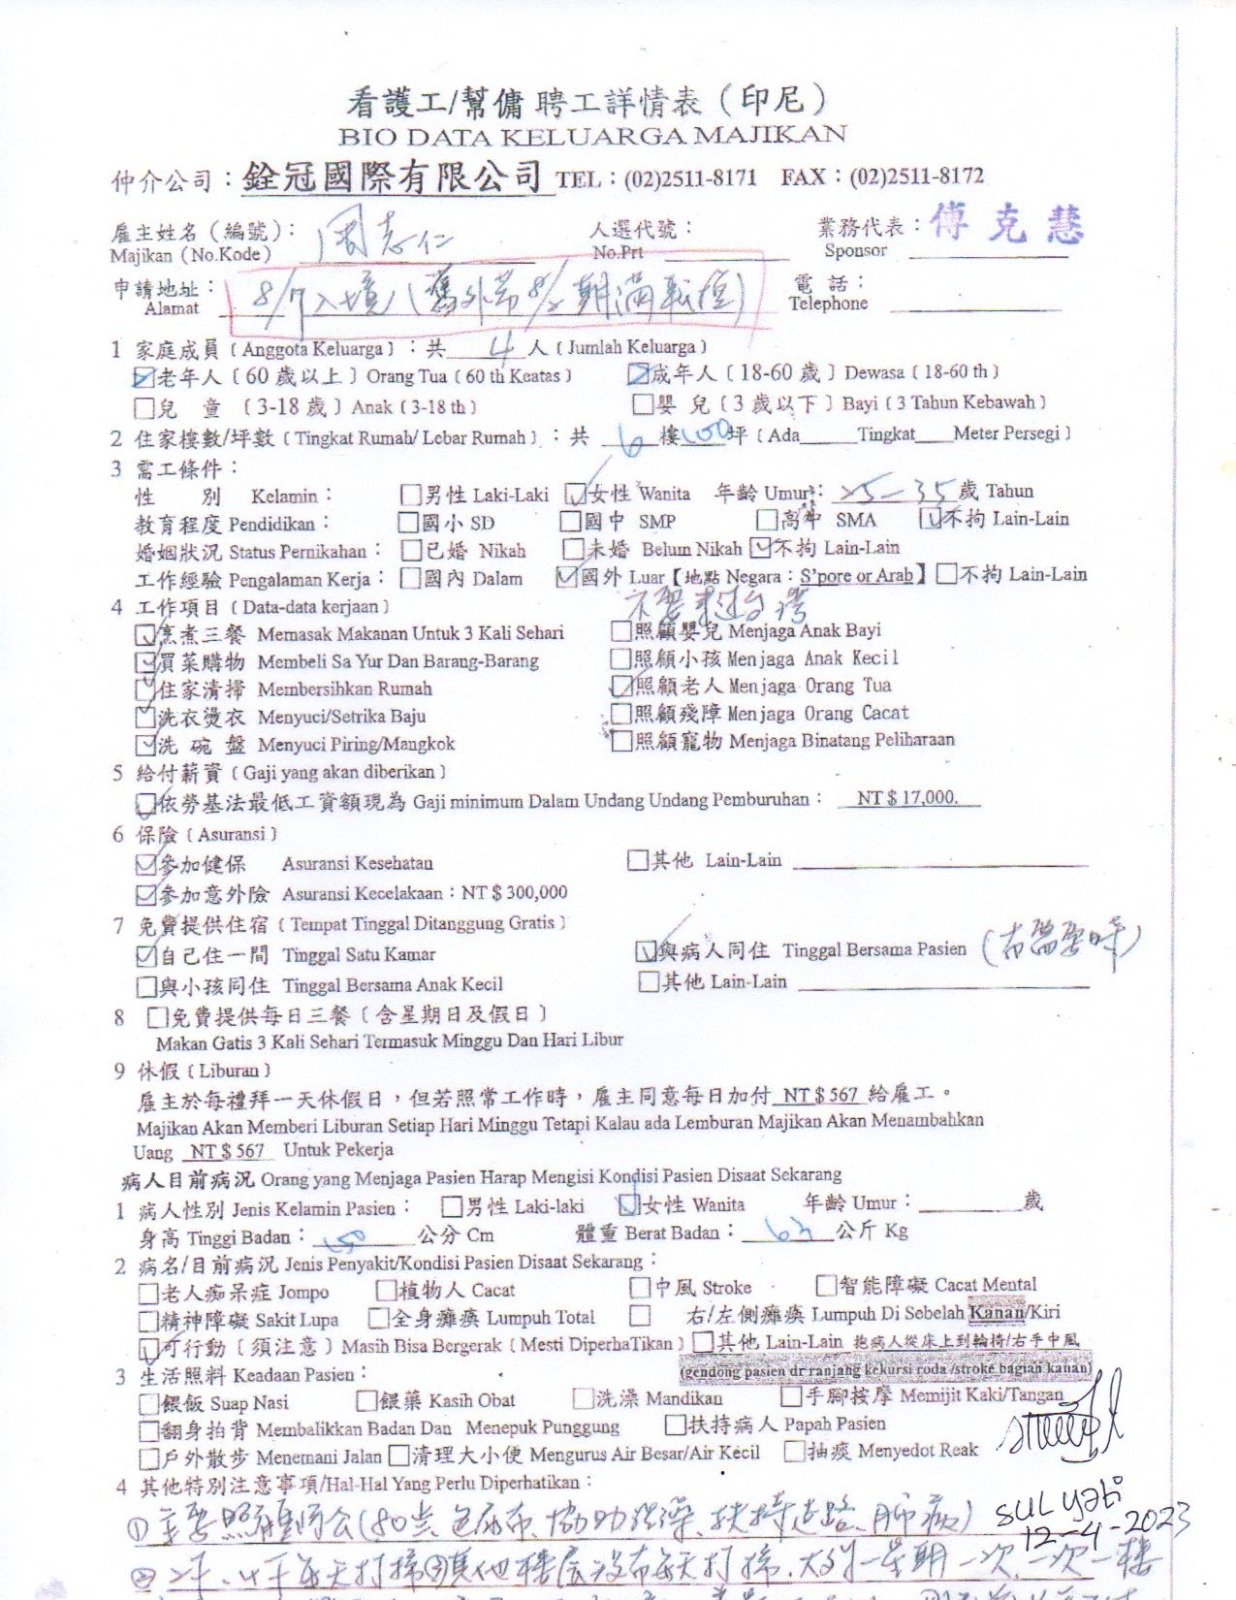 看護工/幫傭 聘工詳情表（印尼）
BIO DATA KELUARGA MAJIKAN
仲介公司：銓冠國際有限公司 TEL：(02)2511-8171 FAX：(02)2511-8172
雇主姓名（編號）： 周志仁 人選代號： 業務代表：傅克慧
Majikan（No.Kode） No.Prt Sponsor
申請地址： 8/7入境（舊外勞8/2期滿轉值） 電話：
Alamat Telephone
1 家庭成員（Anggota Keluarga）：共 4 人（Jumlah Keluarga）
☑老年人（60歲以上）Orang Tua（60 th Keatas） ☑成年人（18-60歲）Dewasa（18-60 th）
☐兒 童（3-18歲）Anak（3-18 th） ☐嬰 兒（3歲以下）Bayi（3 Tahun Kebawah）
2 住家樓數/坪數（Tingkat Rumah/ Lebar Rumah）：共 6 樓100坪（Ada_____Tingkat____Meter Persegi）
3 需工條件：
性 別 Kelamin： ☐男性 Laki-Laki ☑女性 Wanita 年齡 Umur： 25-35歲 Tahun
教育程度 Pendidikan： ☐國小 SD ☐國中 SMP ☐高中 SMA ☑不拘 Lain-Lain
婚姻狀況 Status Pernikahan： ☐已婚 Nikah ☐未婚 Belum Nikah ☑不拘 Lain-Lain
工作經驗 Pengalaman Kerja： ☐國內 Dalam ☑國外 Luar【地點 Negara：S'pore or Arab】☐不拘 Lain-Lain
不要來過台灣
4 工作項目（Data-data kerjaan）
☑烹煮三餐 Memasak Makanan Untuk 3 Kali Sehari ☐照顧嬰兒 Menjaga Anak Bayi
☑買菜購物 Membeli Sa Yur Dan Barang-Barang ☐照顧小孩 Menjaga Anak Kecil
☑住家清掃 Membersihkan Rumah ☑照顧老人 Menjaga Orang Tua
☑洗衣燙衣 Menyuci/Setrika Baju ☐照顧殘障 Menjaga Orang Cacat
☑洗 碗 盤 Menyuci Piring/Mangkok ☐照顧寵物 Menjaga Binatang Peliharaan
5 給付薪資（Gaji yang akan diberikan）
☑依勞基法最低工資額現為 Gaji minimum Dalam Undang Undang Pemburuhan： NT＄17,000.
6 保險（Asuransi）
☑參加健保 Asuransi Kesehatan ☐其他 Lain-Lain
☑參加意外險 Asuransi Kecelakaan：NT＄300,000
7 免費提供住宿（Tempat Tinggal Ditanggung Gratis）
☑自己住一間 Tinggal Satu Kamar ☑與病人同住 Tinggal Bersama Pasien (有需要時)
☐與小孩同住 Tinggal Bersama Anak Kecil ☐其他 Lain-Lain
8 ☐免費提供每日三餐（含星期日及假日）
Makan Gatis 3 Kali Sehari Termasuk Minggu Dan Hari Libur
9 休假（Liburan）
雇主於每禮拜一天休假日，但若照常工作時，雇主同意每日加付 NT＄567 給雇工。
Majikan Akan Memberi Liburan Setiap Hari Minggu Tetapi Kalau ada Lemburan Majikan Akan Menambahkan
Uang NT＄567 Untuk Pekerja
病人目前病況 Orang yang Menjaga Pasien Harap Mengisi Kondisi Pasien Disaat Sekarang
1 病人性別 Jenis Kelamin Pasien： ☐男性 Laki-laki ☑女性 Wanita 年齡 Umur：________歲
身高 Tinggi Badan： 150 公分 Cm 體重 Berat Badan： 63 公斤 Kg
2 病名/目前病況 Jenis Penyakit/Kondisi Pasien Disaat Sekarang：
☐老人痴呆症 Jompo ☐植物人 Cacat ☐中風 Stroke ☐智能障礙 Cacat Mental
☐精神障礙 Sakit Lupa ☐全身癱瘓 Lumpuh Total ☐ 右/左側癱瘓 Lumpuh Di Sebelah Kanan/Kiri
☑可行動（須注意）Masih Bisa Bergerak（Mesti DiperhaTikan）☐其他 Lain-Lain 抱病人從床上到輪椅/右手中風
(gendong pasien dr ranjang kekursi roda /stroke bagian kanan)
3 生活照料 Keadaan Pasien：
☐餵飯 Suap Nasi ☐餵藥 Kasih Obat ☐洗澡 Mandikan ☐手腳按摩 Memijit Kaki/Tangan
☐翻身拍背 Membalikkan Badan Dan Menepuk Punggung ☐扶持病人 Papah Pasien
☐戶外散步 Menemani Jalan ☐清理大小便 Mengurus Air Besar/Air Kecil ☐抽痰 Menyedot Reak
4 其他特別注意事項/Hal-Hal Yang Perlu Diperhatikan：
①主要照顧阿公(80歲、包尿布、協助洗澡、扶持走路、肺病)
sul yati
12-4-2023
②2F、4F每天打掃，其他樓層沒有每天打掃、大約一星期一次、一次一樓